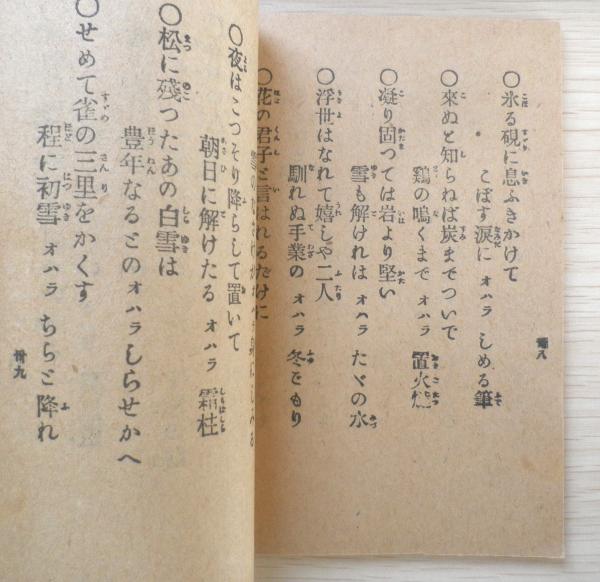 ○氷る硯に息ふきかけて
こぼす涙に オハラ しめる筆
○來ぬと知らねば炭までついで
鶏の鳴くまで オハラ 置火燵
○凝り固つては岩より堅い
雪も解けれは オハラ たゞの水
○浮世はなれて嬉しや二人
馴れぬ手業の オハラ 冬ごもり
○花の君子と言はれるだけに
卅八
○夜はこつそり降らして置いて
朝日に解けたる オハラ 霜柱
○松に殘つたあの白雪は
豊年なるとの オハラ しらせかへ
○せめて雀の三里をかくす
程に初雪 オハラ ちらと降れ
卅九